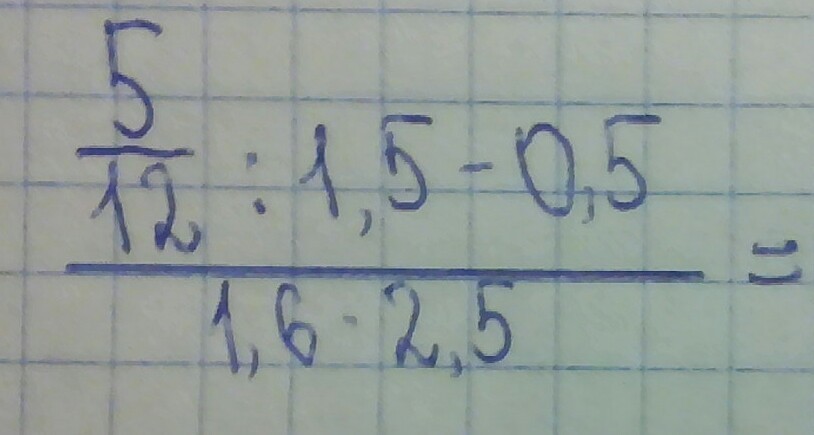 5
12 : 1,5 - 0,5
1,6 · 2,5 =